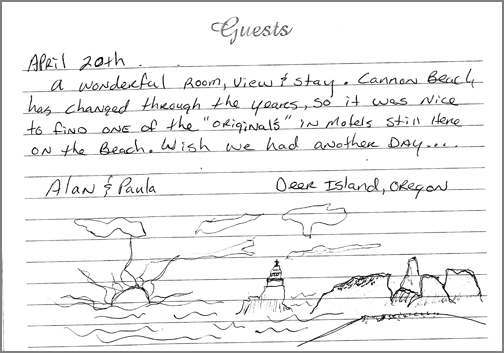 Guests
April 20th.
A wonderful room, view & stay. Cannon Beach
has changed through the years, so it was nice
to find one of the "originals" in motels still here
on the beach. Wish we had another day....
Alan & Paula Deer Island, Oregon